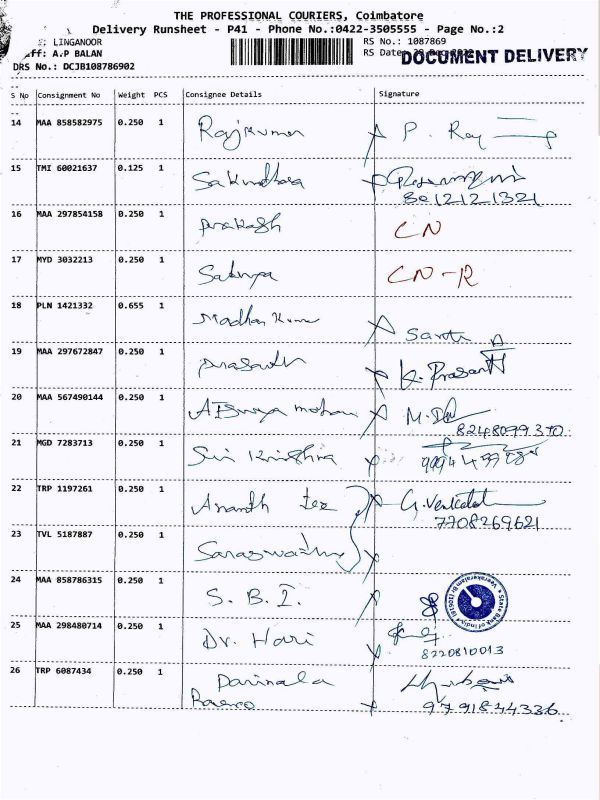 THE PROFESSIONAL COURIERS, Coimbatore
Delivery Runsheet - P41 - Phone No.:0422-3505555 - Page No.:2
: LINGANOOR
RS No.: 1087869
ff: A.P BALAN
RS Date
DOCUMENT DELIVERY
DRS No.: DCJB108786902
S No Consignment No Weight PCS Consignee Details Signature
14 MAA 858582975 0.250 1 Rajkumar P. Raj
15 TMI 60021637 0.125 1
8012121321
16 MAA 297854158 0.250 1 Prakash CN
17 MYD 3032213 0.250 1 Sathya CN-R
18 PLN 1421332 0.655 1 Madhan Kumar
19 MAA 297672847 0.250 1 Prasanth K. Prasanth
20 MAA 567490144 0.250 1 mohan M.
21 MGD 7283713 0.250 1 Sri Krishna
22 TRP 1197261 0.250 1 Ananth Tex G. Venkatesh
7708269621
23 TVL 5187887 0.250 1 Saraswathy
24 MAA 858786315 0.250 1 S. B. I.
State Bank of India
25 MAA 298480714 0.250 1 Dr. Hari
8220810013
26 TRP 6087434 0.250 1
9791844336